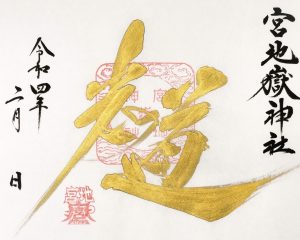 宮地嶽神社
光の道
令和四年
二月 日